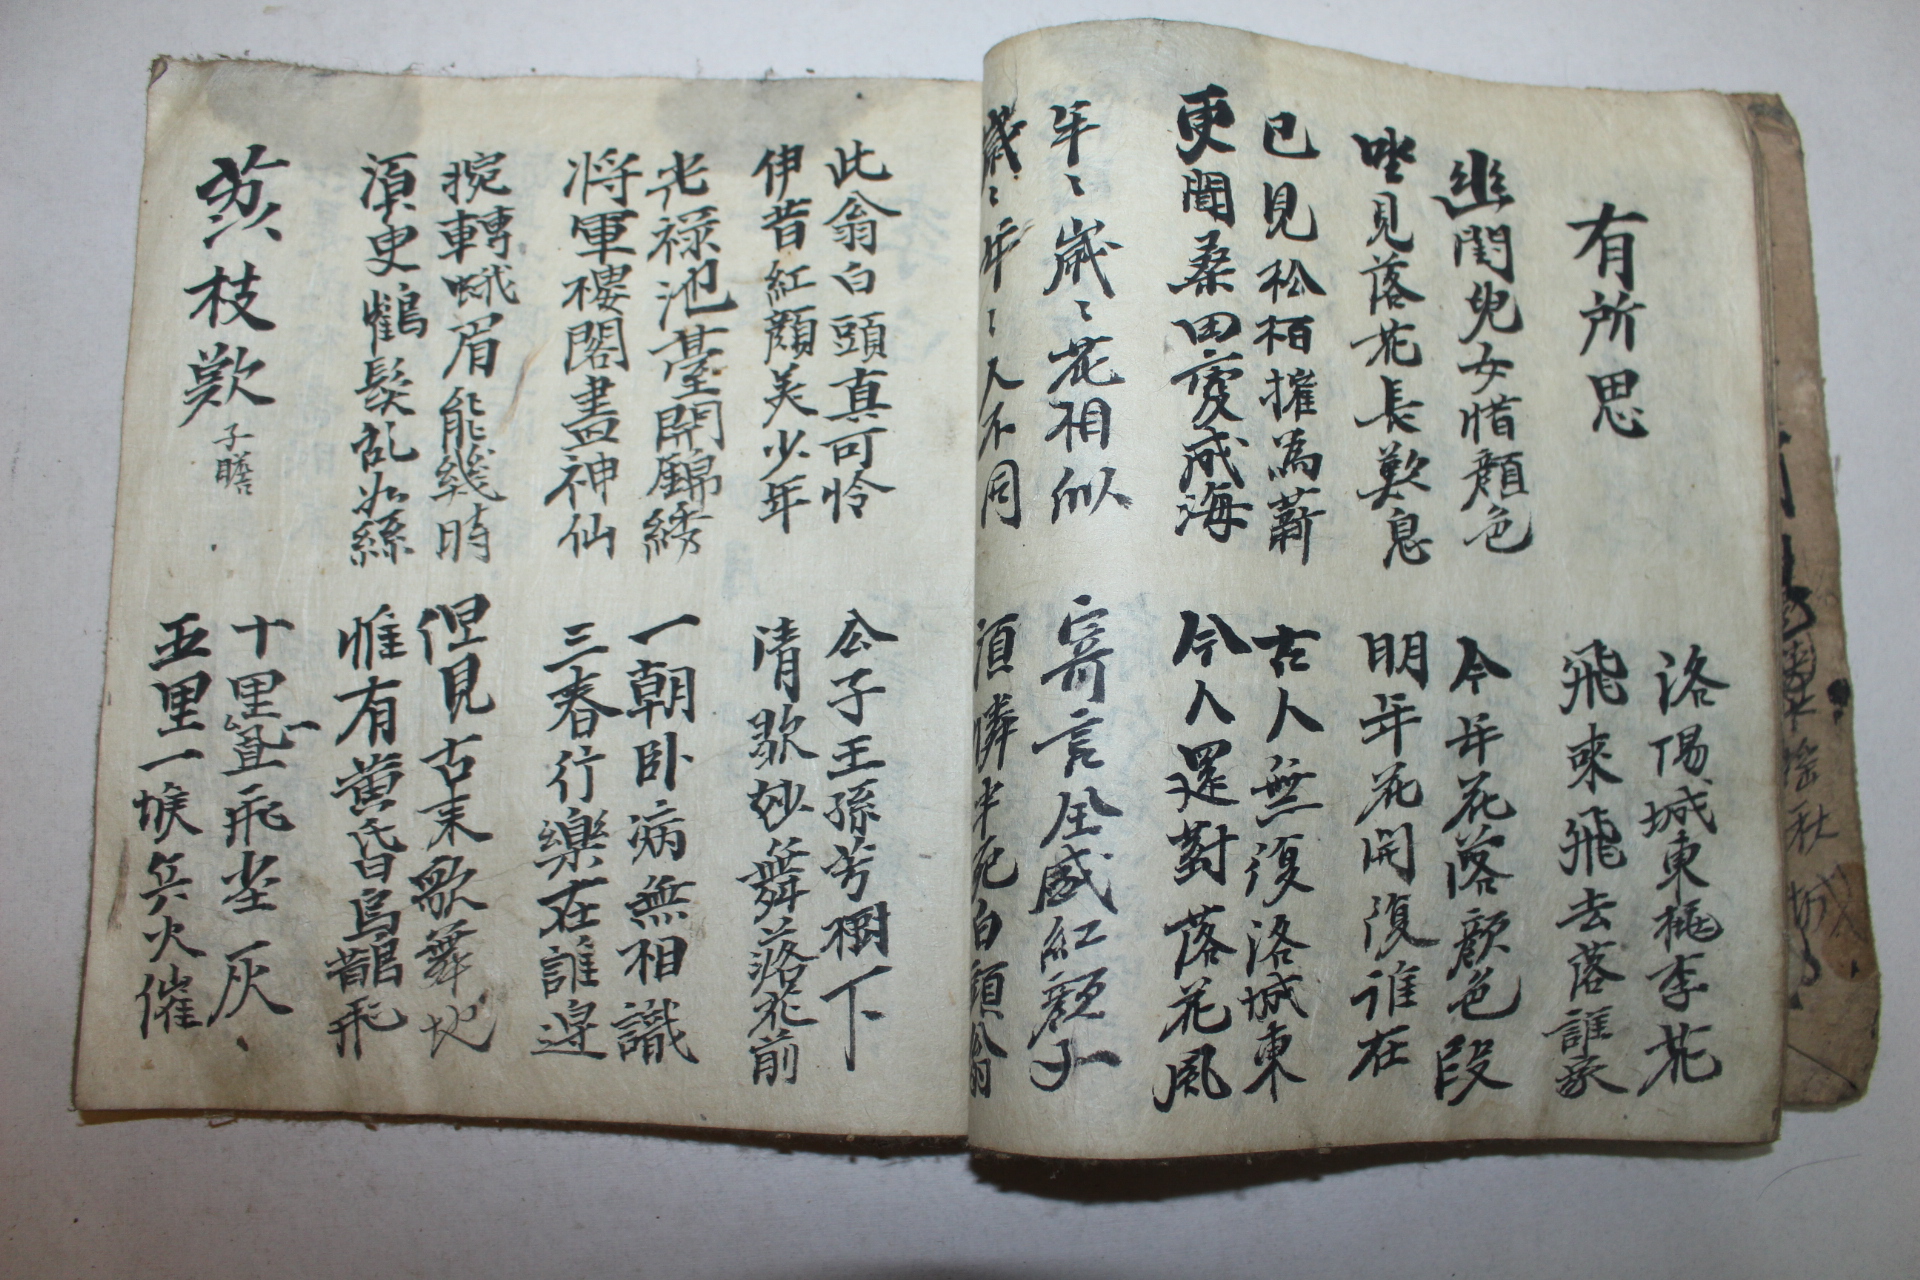 有所思
洛陽城東桃李花
飛來飛去落誰家
幽閨兒女惜顔色
坐見落花長歎息
今年花落顔色段
明年花開復誰在
已見松栢摧為薪
更聞桑田變成海
古人無復洛城東
今人還對落花風
年〻歲〻花相似
歲〻年〻人不同
寄言全盛紅顔子
湏憐半死白頭翁
此翁白頭真可怜
伊昔紅顔美少年
公子王孫芳樹下
清歌妙舞落花前
光祿池臺開錦綉
將軍樓閣畫神仙
一朝卧病無相識
三春行樂在誰邊
捥轉蛾眉能幾時
湏臾鶴髮乱如絲
但見古來歌舞地
惟有黃昏鳥鵲飛
荔枝歎 子瞻
十里一置飛尘灰
五里一堠兵火催